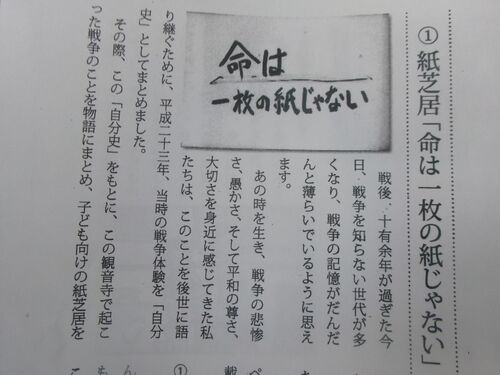 ①紙芝居「命は一枚の紙じゃない」
命は
一枚の紙じゃない
戦後、十有余年が過ぎた今
日、戦争を知らない世代が多
くなり、戦争の記憶がだんだ
んと薄らいでいるように思え
ます。
あの時を生き、戦争の悲惨
さ、愚かさ、そして平和の尊さ、
大切さを身近に感じてきた私
たちは、このことを後世に語
り継ぐために、平成二十三年、当時の戦争体験を「自分
史」としてまとめました。
その際、この「自分史」をもとに、この観音寺で起こ
った戦争のことを物語にまとめ、子ども向けの紙芝居を